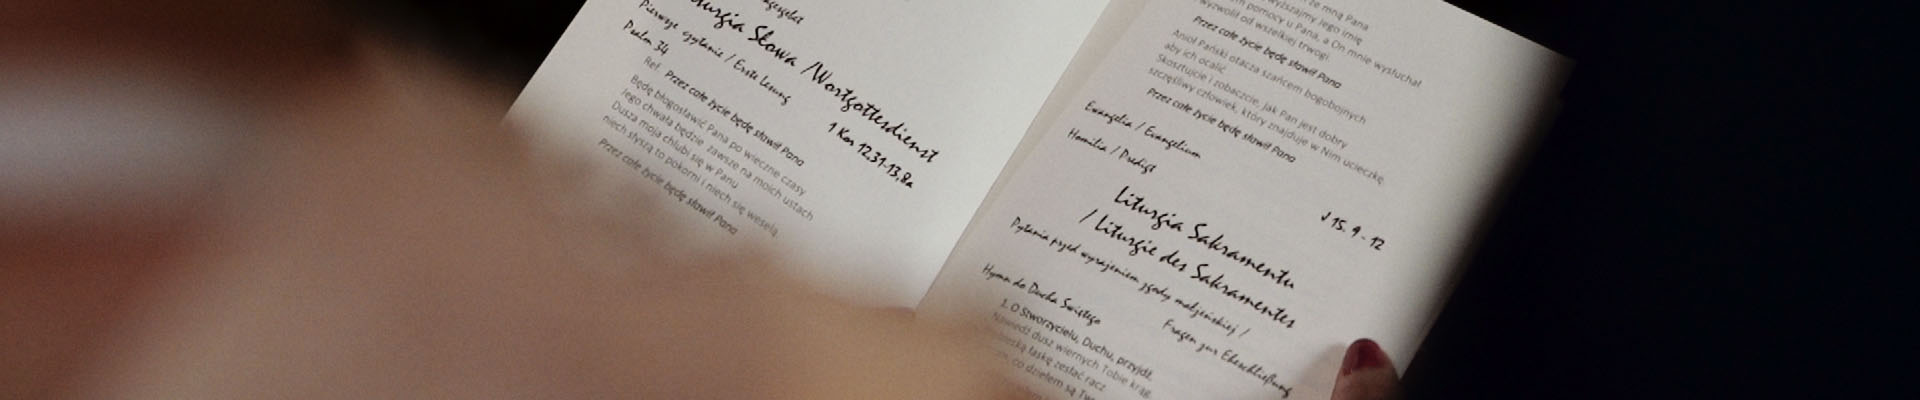 Liturgia Słowa /Wortgottesdienst
Pierwsze czytanie / Erste Lesung
1 Kor 12,31-13,8a
Psalm 34
Ref. Przez całe życie będę sławił Pana
Będę błogosławić Pana po wieczne czasy
Jego chwała będzie zawsze na moich ustach
Dusza moja chlubi się w Panu
niech słyszą to pokorni i niech się weselą
Przez całe życie będę sławił Pana
ze mną Pana
wywyższajmy Jego imię
pomocy u Pana, a On mnie wysłuchał
wyzwolił od wszelkiej trwogi
Przez całe życie będę sławił Pana
Anioł Pański otacza szańcem bogobojnych
aby ich ocalić
Skosztujcie i zobaczcie, jak Pan jest dobry
szczęśliwy człowiek, który znajduje w Nim ucieczkę
Przez całe życie będę sławił Pana
Ewangelia / Evangelium
J 15. 9 - 12
Homilia / Predigt
Liturgia Sakramentu
/ Liturgie des Sakramentes
Pytania przed wyrażeniem zgody małżeńskiej /
Fragen zur Eheschließung
Hymn do Ducha Świętego
1. O Stworzycielu, Duchu, przyjdź,
Nawiedź dusz wiernych Tobie krąg.
łaskę zesłać racz
co dziełem są